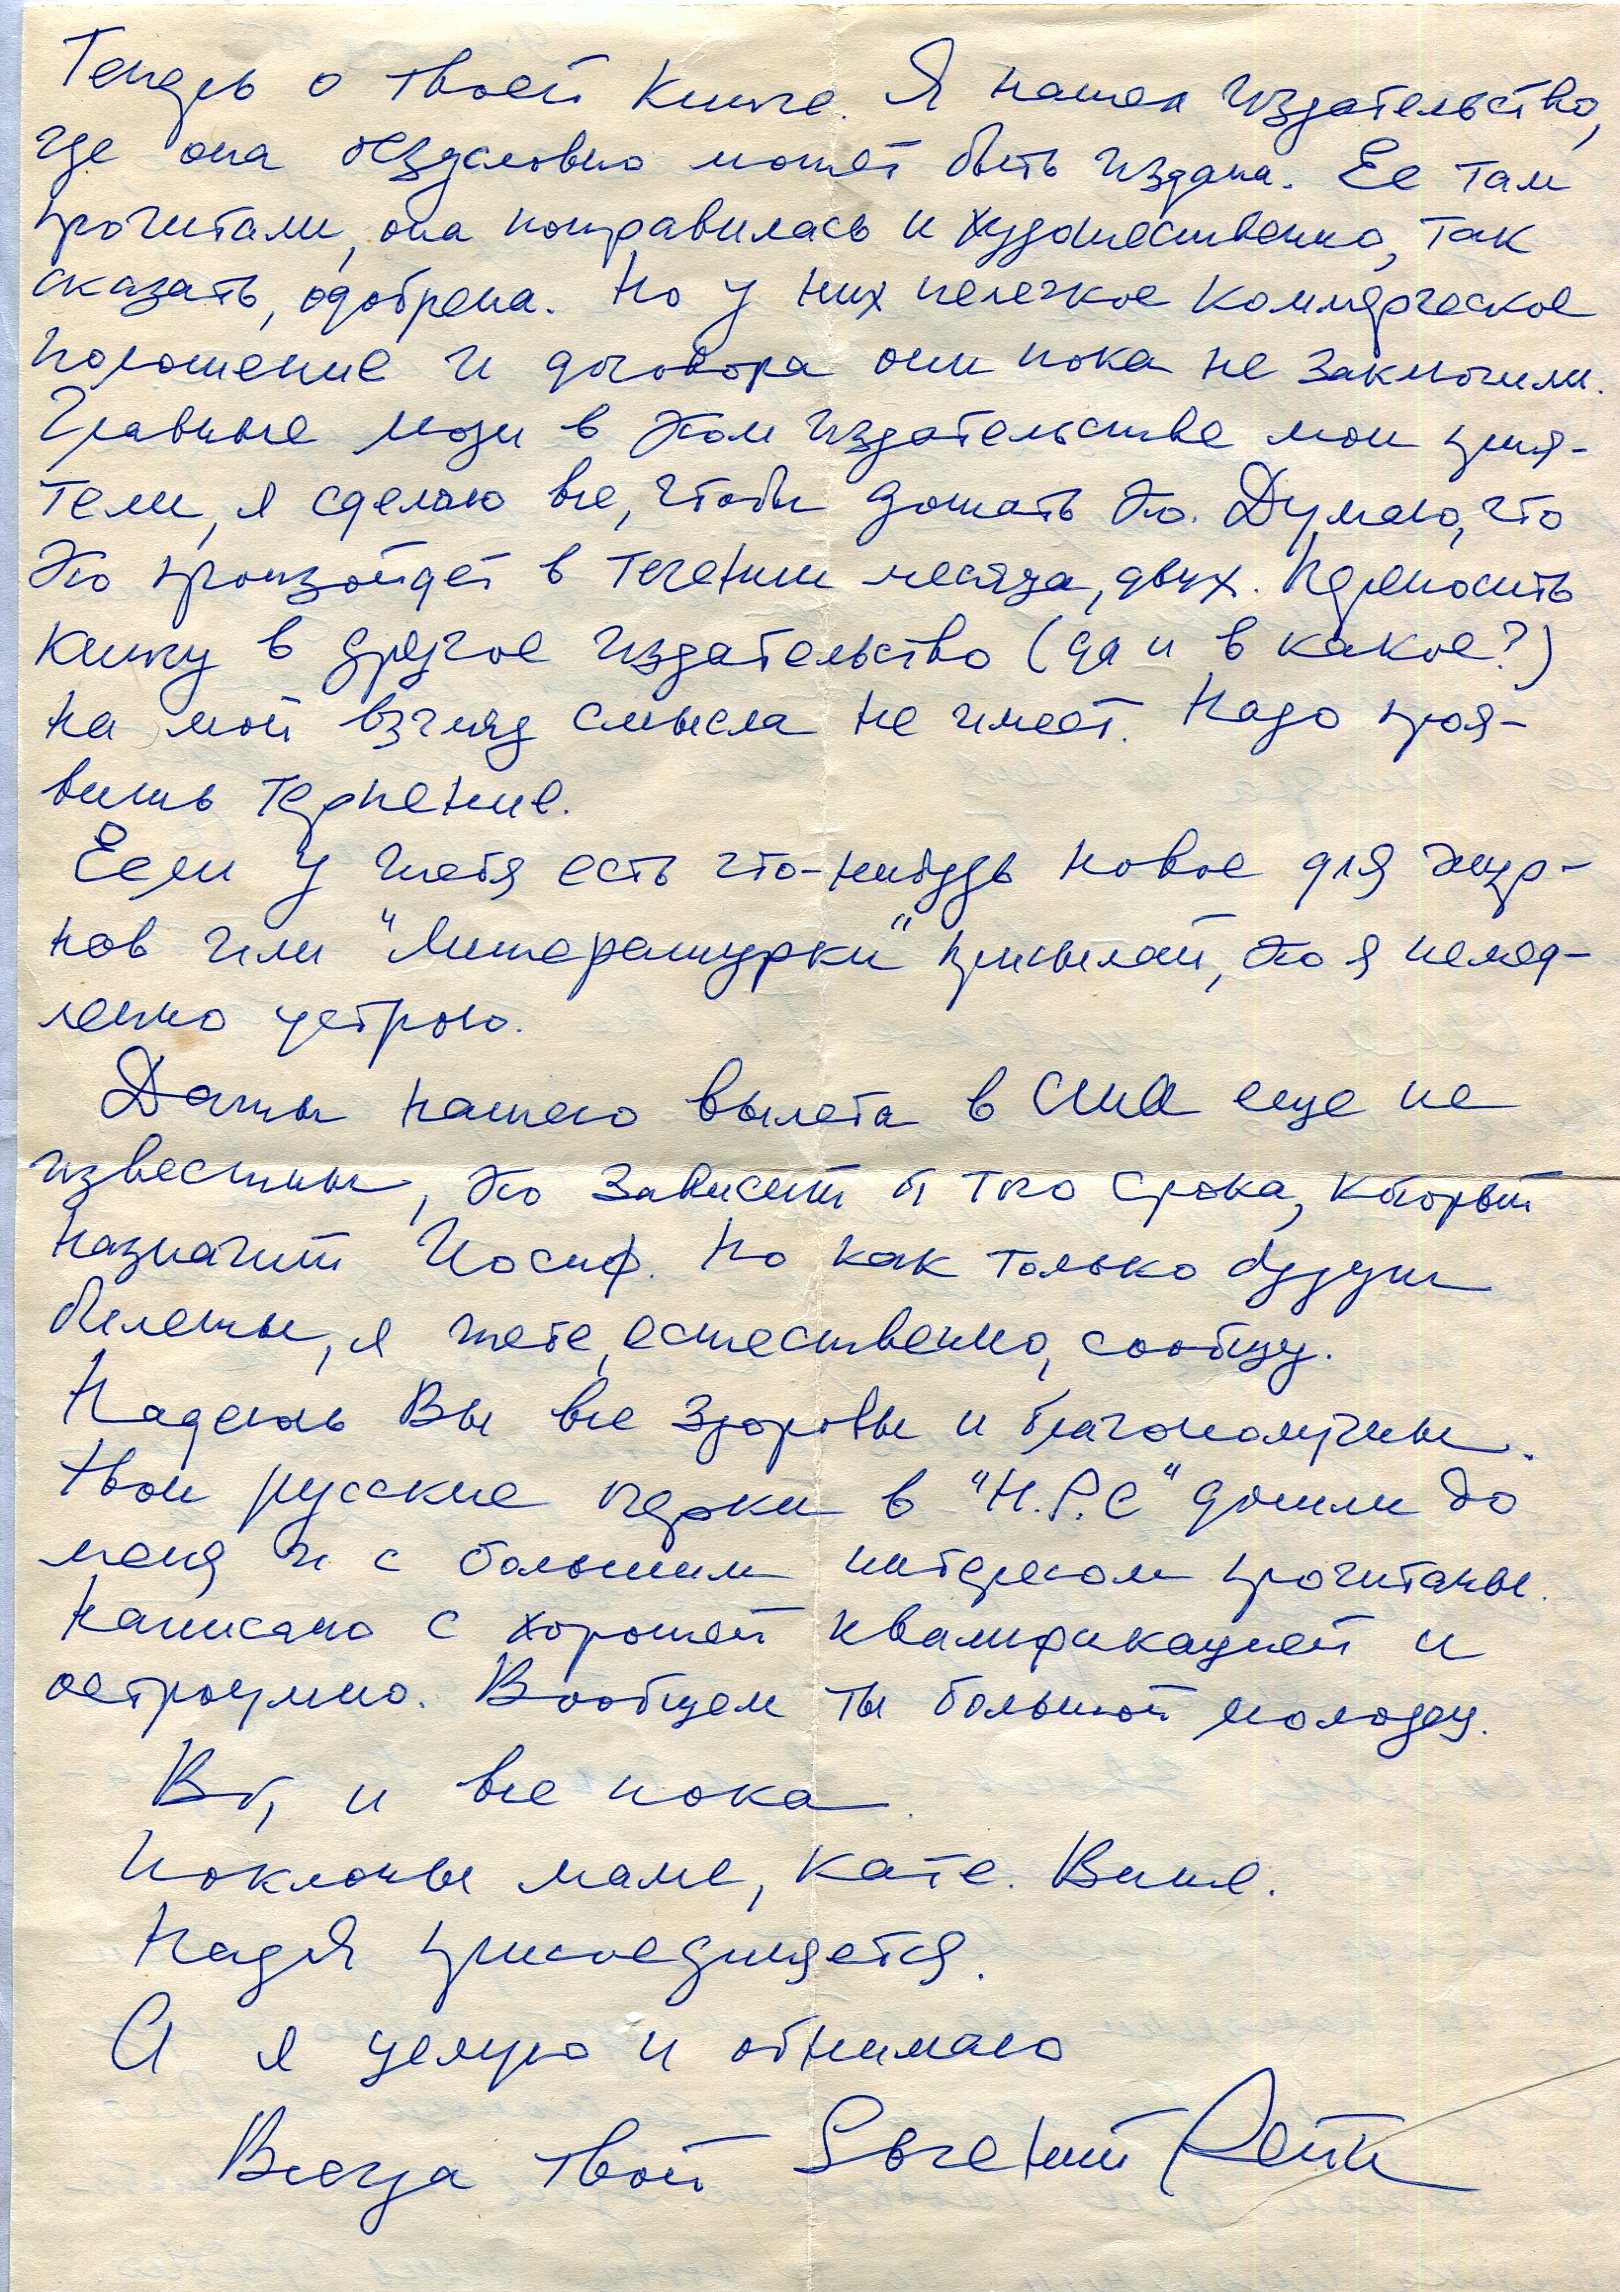 Теперь о твоей книге. Я нашел издательство,
где она безусловно может быть издана. Ее там
прочитали, она понравилась и художественно, так
сказать, одобрена. Но у них нелегкое коммерческое
положение и договора они пока не заключили.
Главные люди в этом издательстве мои прия-
тели, я сделаю все, чтобы дожать это. Думаю, что
это произойдет в течении месяца, двух. Переносить
книгу в другое издательство (да и в какое?)
на мой взгляд смысла не имеет. Надо проя-
вить терпение.
Если у тебя есть что-нибудь новое для жур-
нов или "Литературки" присылай, это я немед-
ленно устрою.
Даты нашего вылета в США еще не
известны, это зависит от того срока, который
назначит Иосиф. Но как только будут
билеты, я тебе, естественно, сообщу.
Надеюсь Вы все здоровы и благополучны.
Твои русские очерки в "Н.Р.С" дошли до
меня и с большим интересом прочитаны.
Написано с хорошей квалификацией и
остроумно. Вообщем ты большой молодец.
Вот, и все пока.
Поклоны маме, Кате.
Надя присоединяется.
А я целую и обнимаю
Всегда твой Евгений Рейн